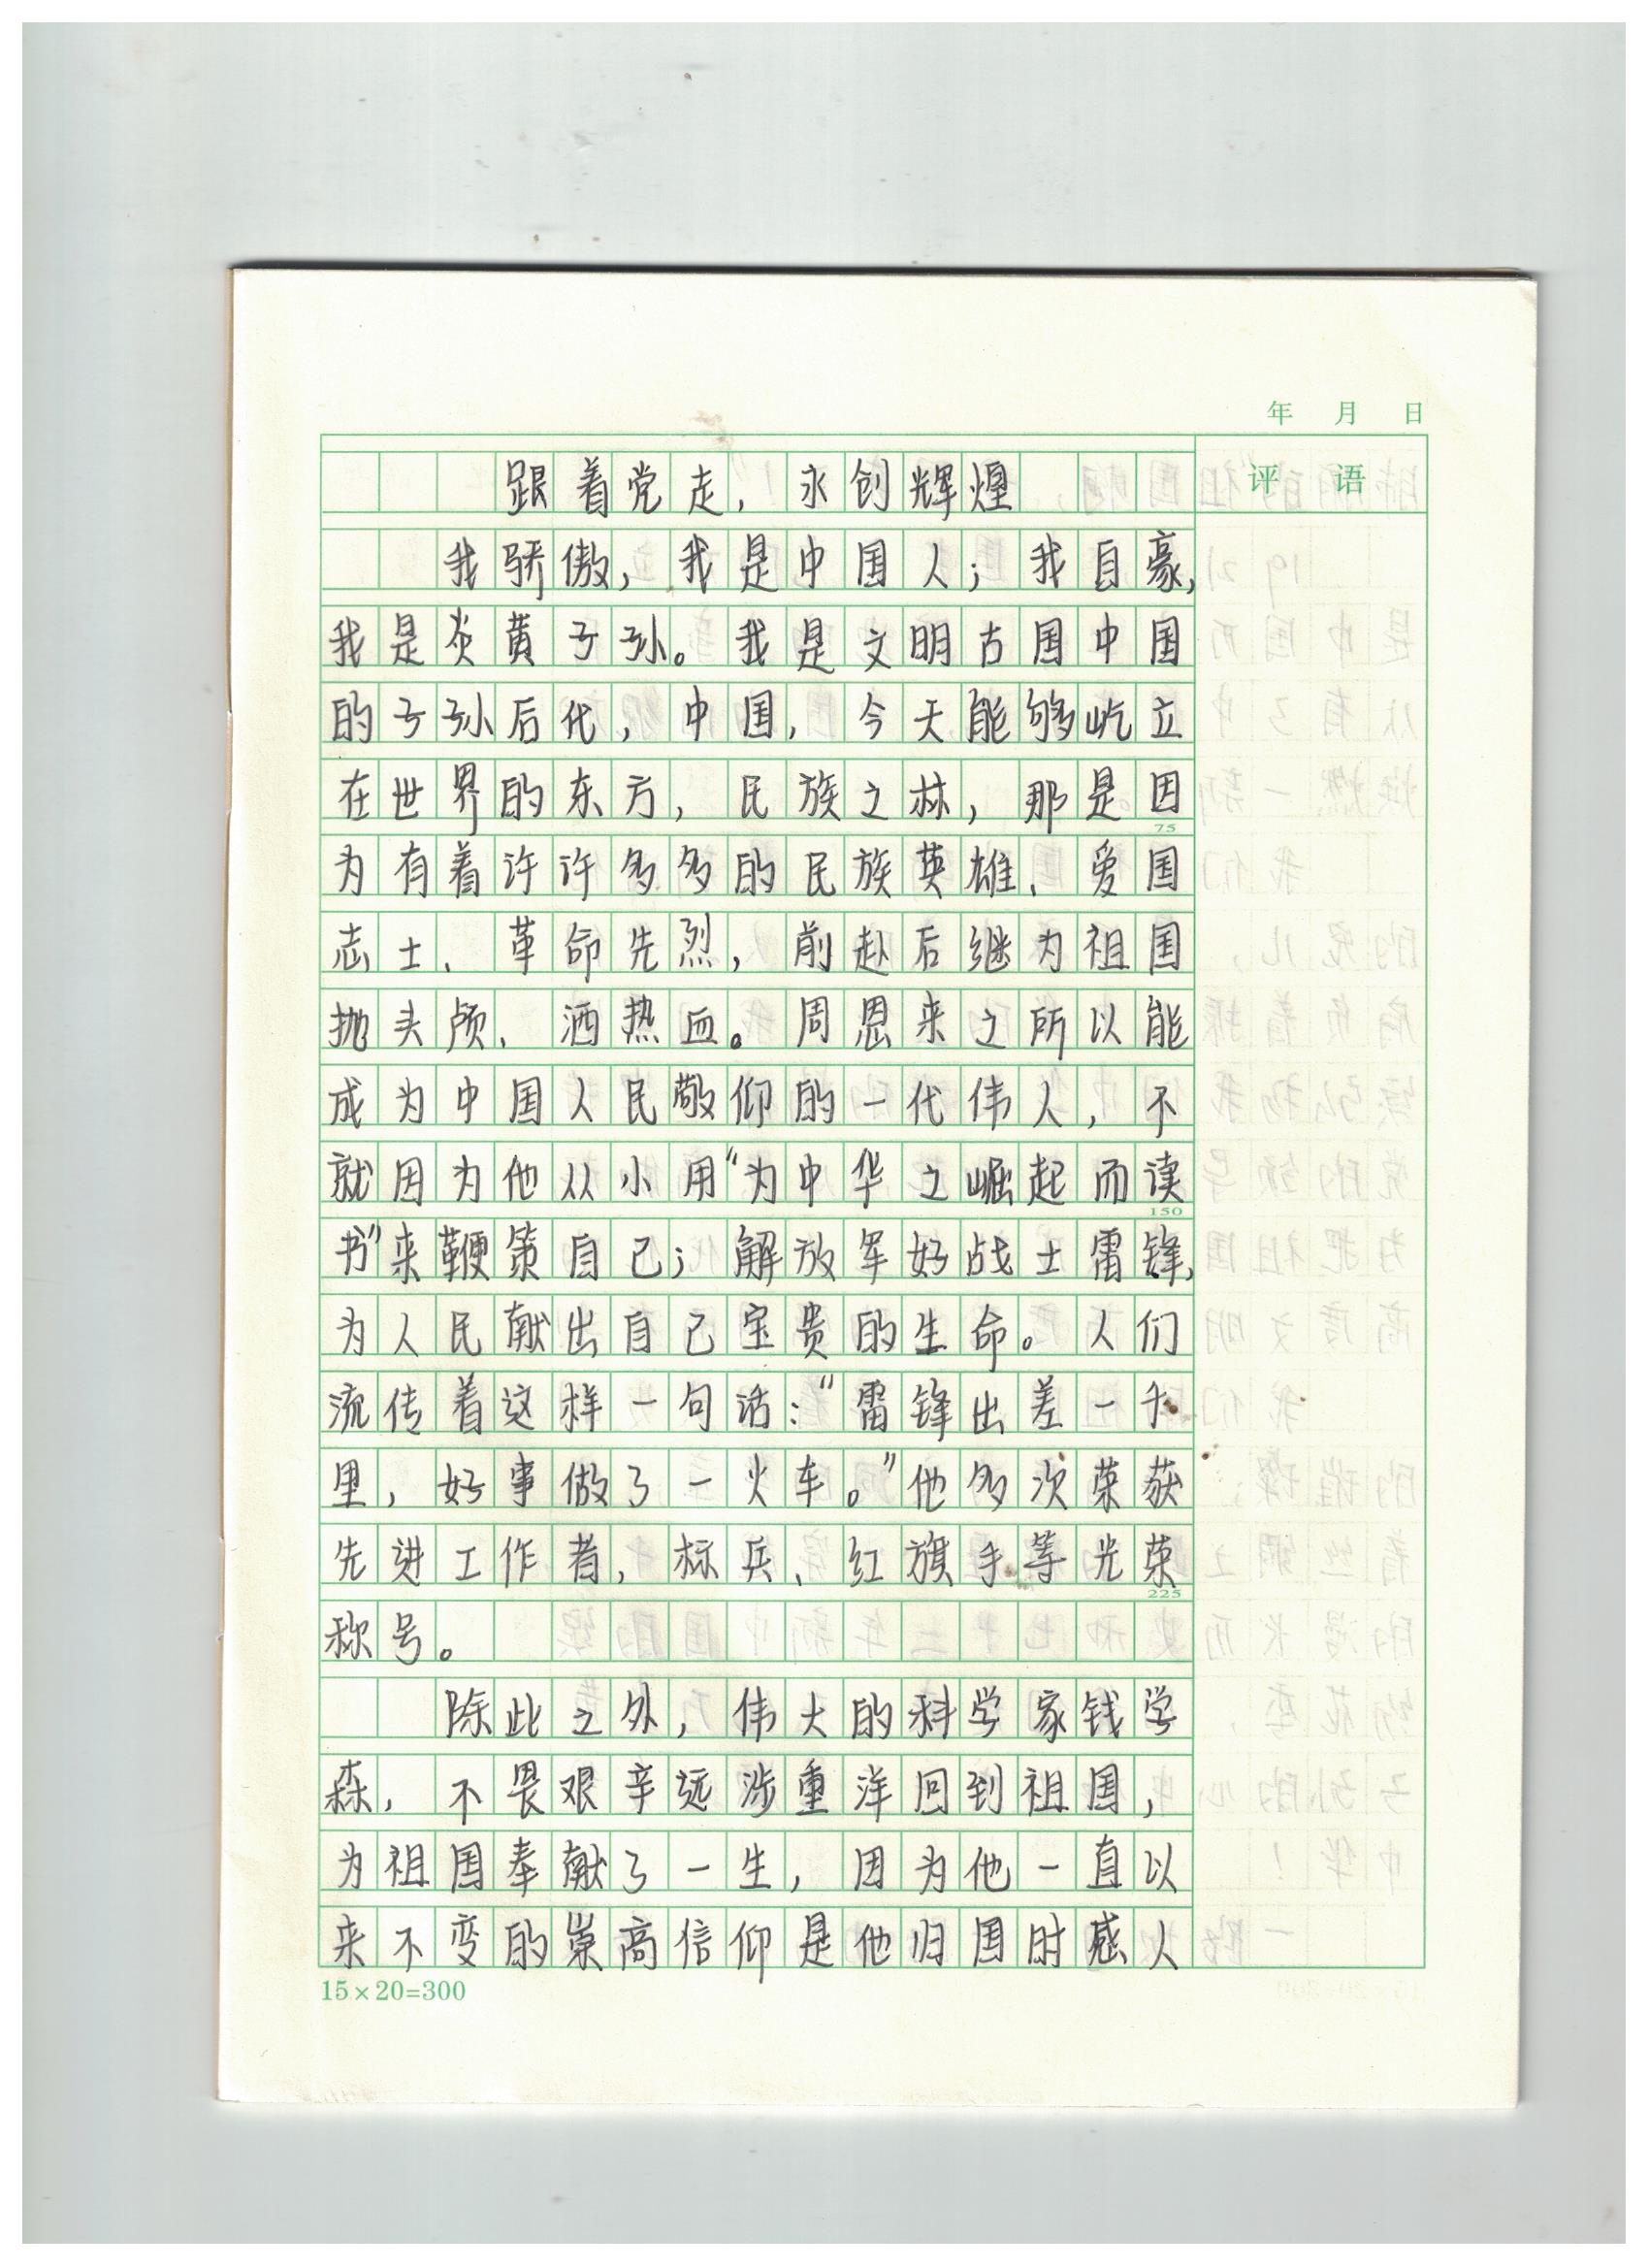 年 月 日
评 语
跟着党走，永创辉煌
我骄傲，我是中国人；我自豪，
我是炎黄子孙。我是文明古国中国
的子孙后代，中国，今天能够屹立
在世界的东方，民族之林，那是因
75
为有着许许多多的民族英雄、爱国
志士、革命先烈，前赴后继为祖国
抛头颅、洒热血。周恩来之所以能
成为中国人民敬仰的一代伟人，不
就因为他从小用“为中华之崛起而读
150
书”来鞭策自己；解放军好战士雷锋，
为人民献出自己宝贵的生命。人们
流传着这样一句话：“雷锋出差一千
里，好事做了一火车。”他多次荣获
先进工作者，标兵、红旗手等光荣
225
称号。
除此之外，伟大的科学家钱学
森，不畏艰辛远涉重洋回到祖国，
为祖国奉献了一生，因为他一直以
来不变的崇高信仰是他归国时感人
15×20=300